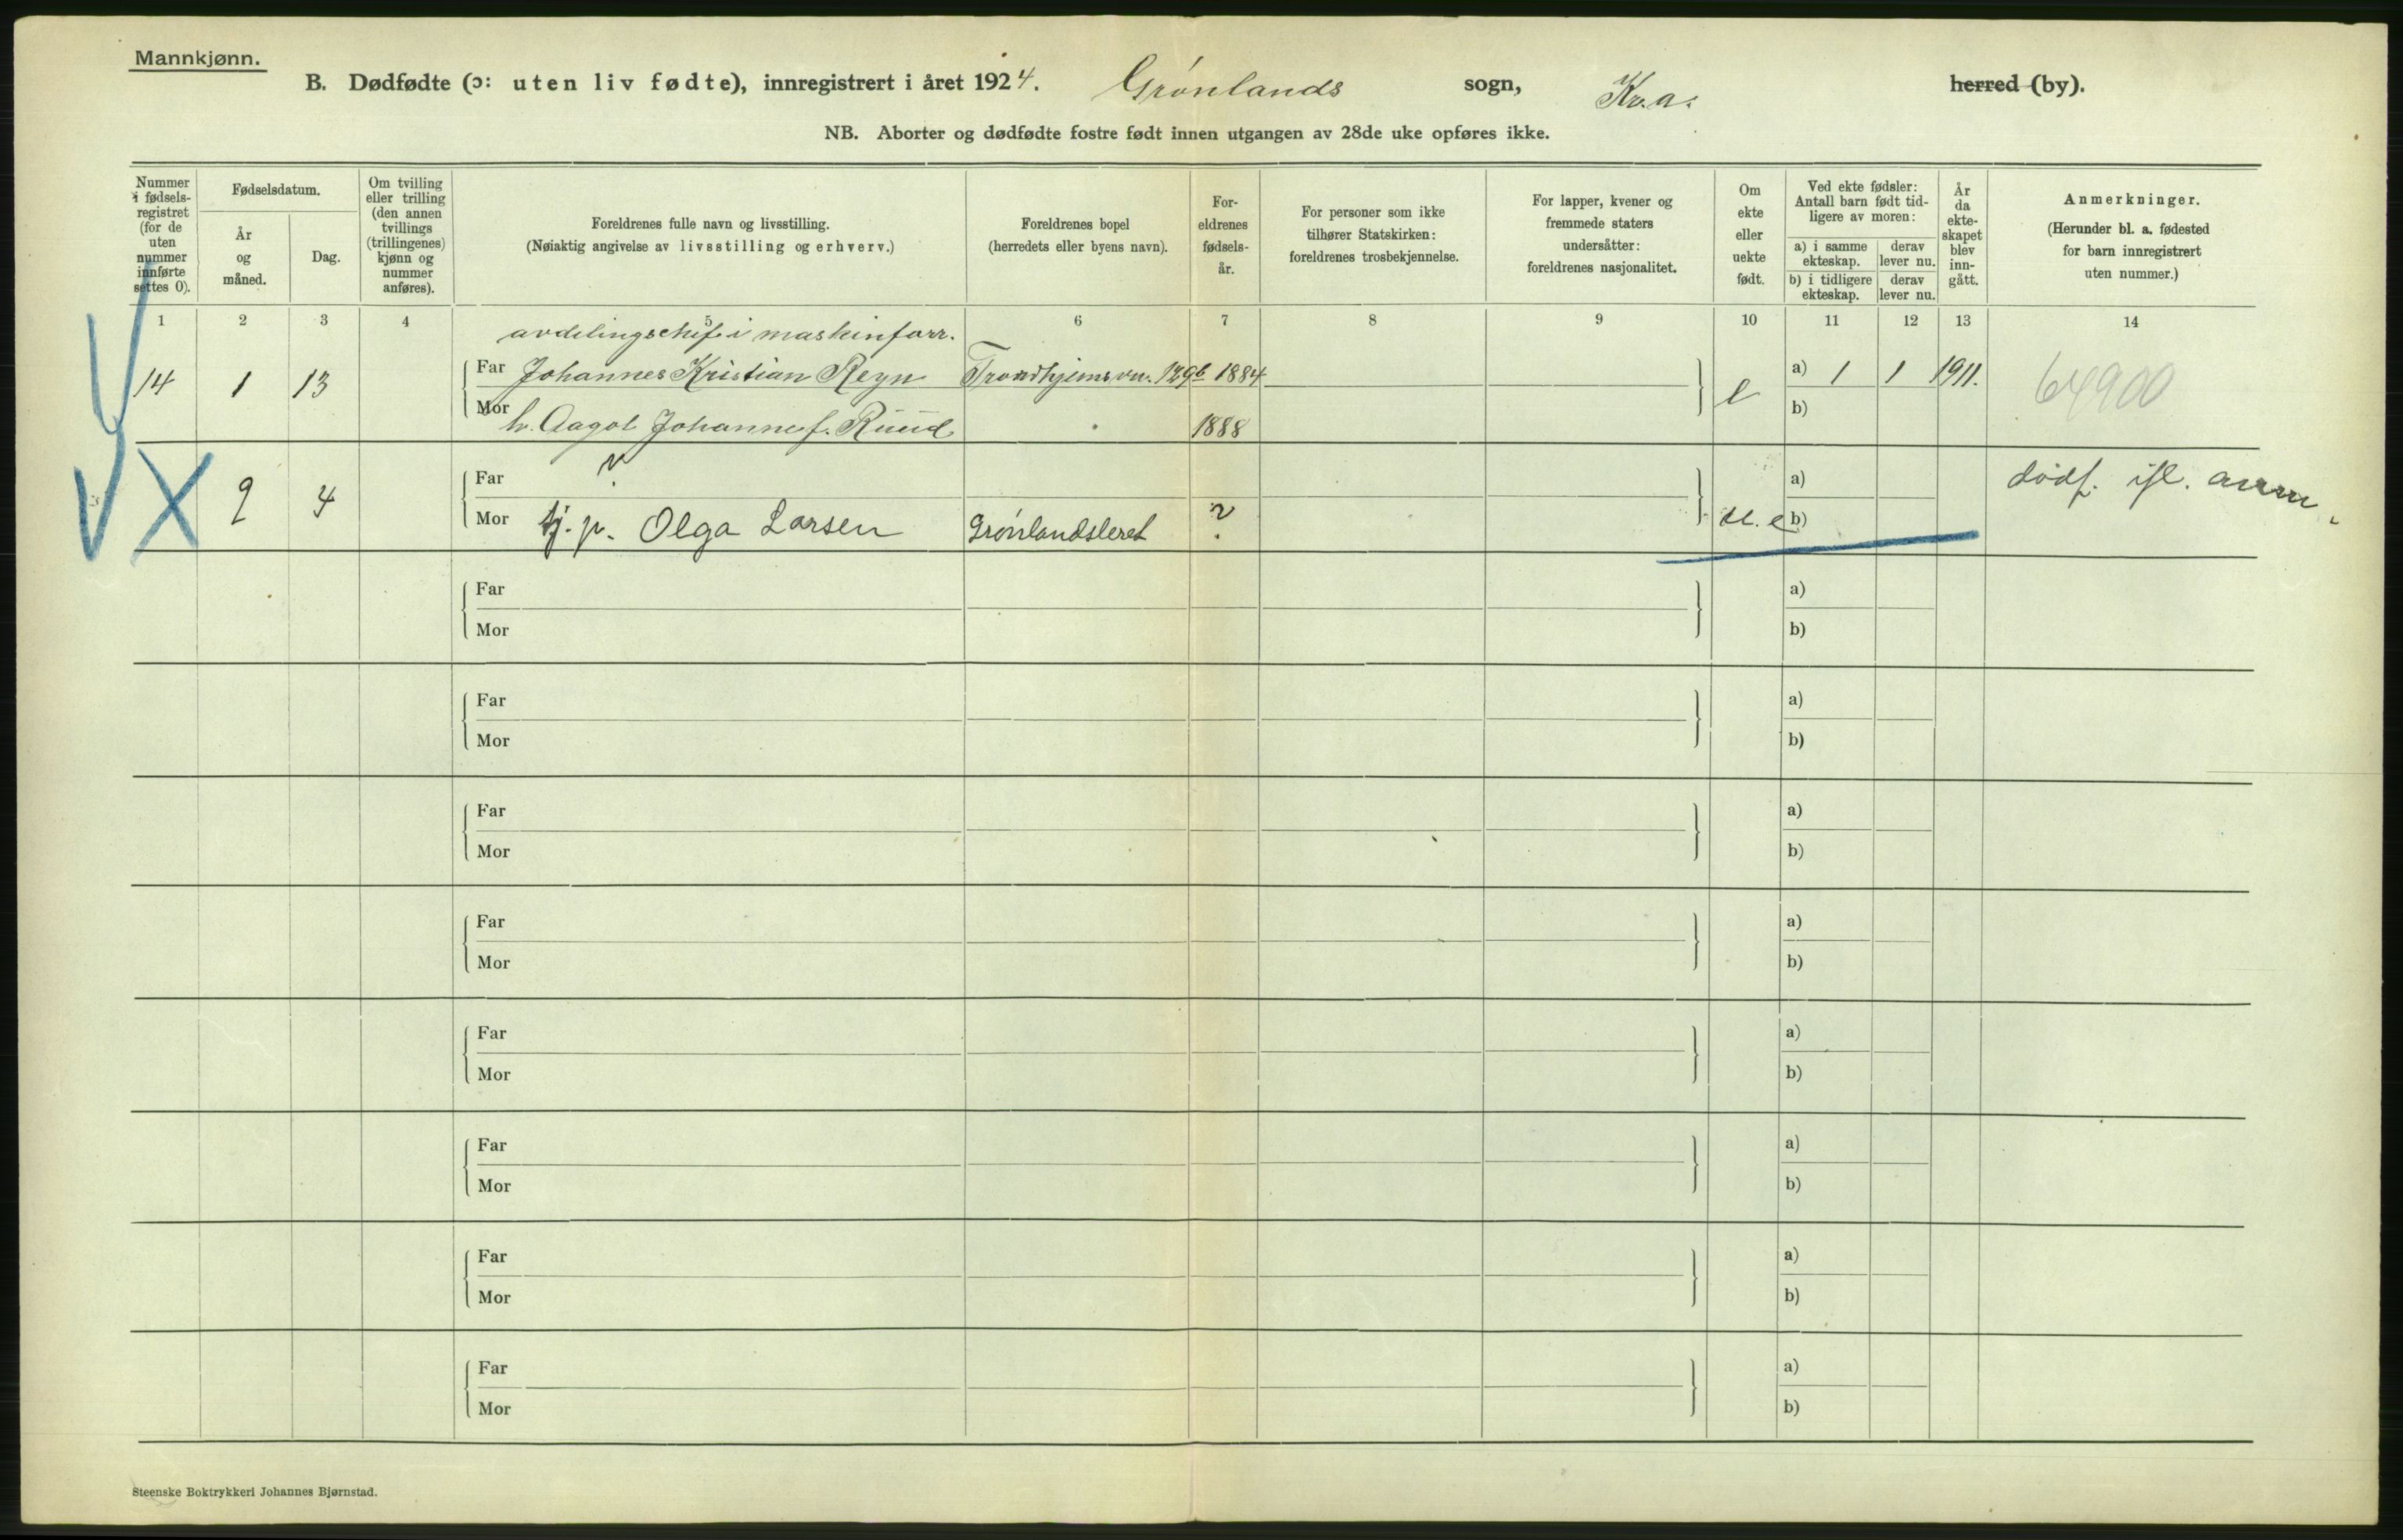 Mannkjønn.
B. Dødfødte (ɔ: uten liv fødte), innregistrert i året 1924. Grønlands sogn, Kr.a. herred (by).
NB. Aborter og dødfødte fostre født innen utgangen av 28de uke opføres ikke.
Nummer
i fødsels-
registret
(for de
uten
nummer
innførte
settes 0).
Fødselsdatum.
År
og
måned.
Dag.
Om tvilling
eller trilling
(den annen
tvillings
(trillingenes)
kjønn og
nummer
anføres).
Foreldrenes fulle navn og livsstilling.
(Nøiaktig angivelse av livsstilling og erhverv.)
Foreldrenes bopel
(herredets eller byens navn).
For-
eldrenes
fødsels-
år.
For personer som ikke
tilhører Statskirken:
foreldrenes trosbekjennelse.
For lapper, kvener og
fremmede staters
undersåtter:
foreldrenes nasjonalitet.
Om
ekte
eller
uekte
født.
Ved ekte fødsler:
Antall barn født tid-
ligere av moren:
a) i samme
ekteskap.
derav
lever nu.
b) i tidligere
ekteskap.
derav
lever nu.
År
da
ekte-
skapet
blev
inn-
gått.
Anmerkninger.
(Herunder bl. a. fødested
for barn innregistrert
uten nummer.)
1 2 3 4 5 6 7 8 9 10 11 12 13 14
avdelingschef i maskinforr.
14 1 13 Far Johannes Kristian Reyn Trondhjemsvn. 129b 1884 e a) 1 1 1911. 64900
Mor h. Aagot Johanne f. Ruud 1888 b)
X 2 4 Far ? a) dødf. ifl. anm.
Mor tj. p. Olga Larsen Grønlandsleret ? u. e b)
Far a)
Mor b)
Far a)
Mor b)
Far a)
Mor b)
Far a)
Mor b)
Far a)
Mor b)
Far a)
Mor b)
Far a)
Mor b)
Far a)
Mor b)
Steenske Boktrykkeri Johannes Bjørnstad.